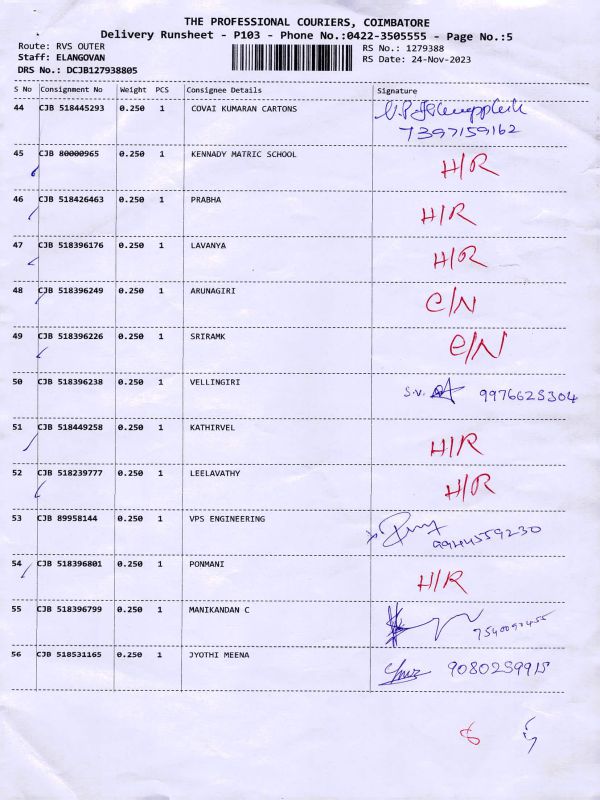 THE PROFESSIONAL COURIERS, COIMBATORE
Delivery Runsheet - P103 - Phone No.:0422-3505555 - Page No.:5
Route: RVS OUTER RS No.: 1279388
Staff: ELANGOVAN RS Date: 24-Nov-2023
DRS No.: DCJB127938805
S No Consignment No Weight PCS Consignee Details Signature
44 CJB 518445293 0.250 1 COVAI KUMARAN CARTONS
7397159162
45 CJB 80000965 0.250 1 KENNADY MATRIC SCHOOL H/R
46 CJB 518426463 0.250 1 PRABHA H/R
47 CJB 518396176 0.250 1 LAVANYA H/R
48 CJB 518396249 0.250 1 ARUNAGIRI C/N
49 CJB 518396226 0.250 1 SRIRAMK C/N
50 CJB 518396238 0.250 1 VELLINGIRI S.V. 9976625304
51 CJB 518449258 0.250 1 KATHIRVEL H/R
52 CJB 518239777 0.250 1 LEELAVATHY H/R
53 CJB 89958144 0.250 1 VPS ENGINEERING 9944559230
54 CJB 518396801 0.250 1 PONMANI H/R
55 CJB 518396799 0.250 1 MANIKANDAN C
56 CJB 518531165 0.250 1 JYOTHI MEENA 9080259915